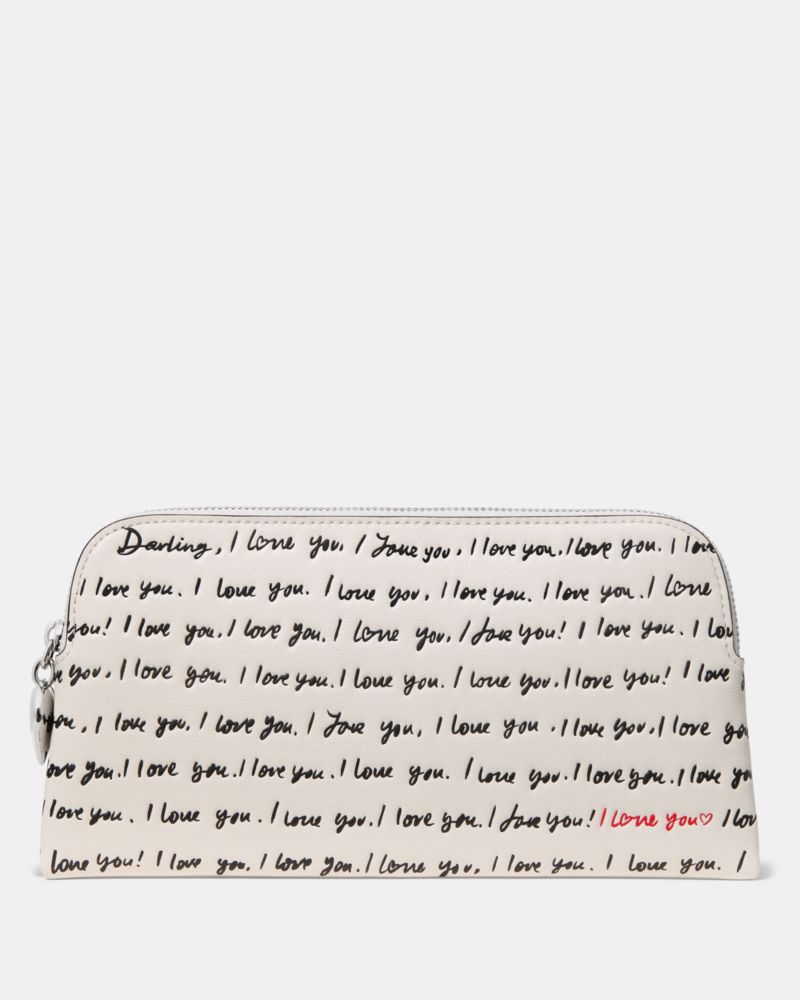 Darling, I love you. I love you. I love you. I love you. I love
I love you. I love you. I love you. I love you. I love you. I love
you! I love you. I love you. I love you. I love you! I love you. I lov
you. I love you. I love you. I love you. I love you. I love you! I love
you. I love you. I love you. I love you, I love you. I love you. I love yo
ove you. I love you. I love you. I love you. I love you. I love you. I love you
I love you. I love you. I love you. I love you. I love you! I love you♡ I lov
love you! I love you. I love you. I love you. I love you. I love you. I